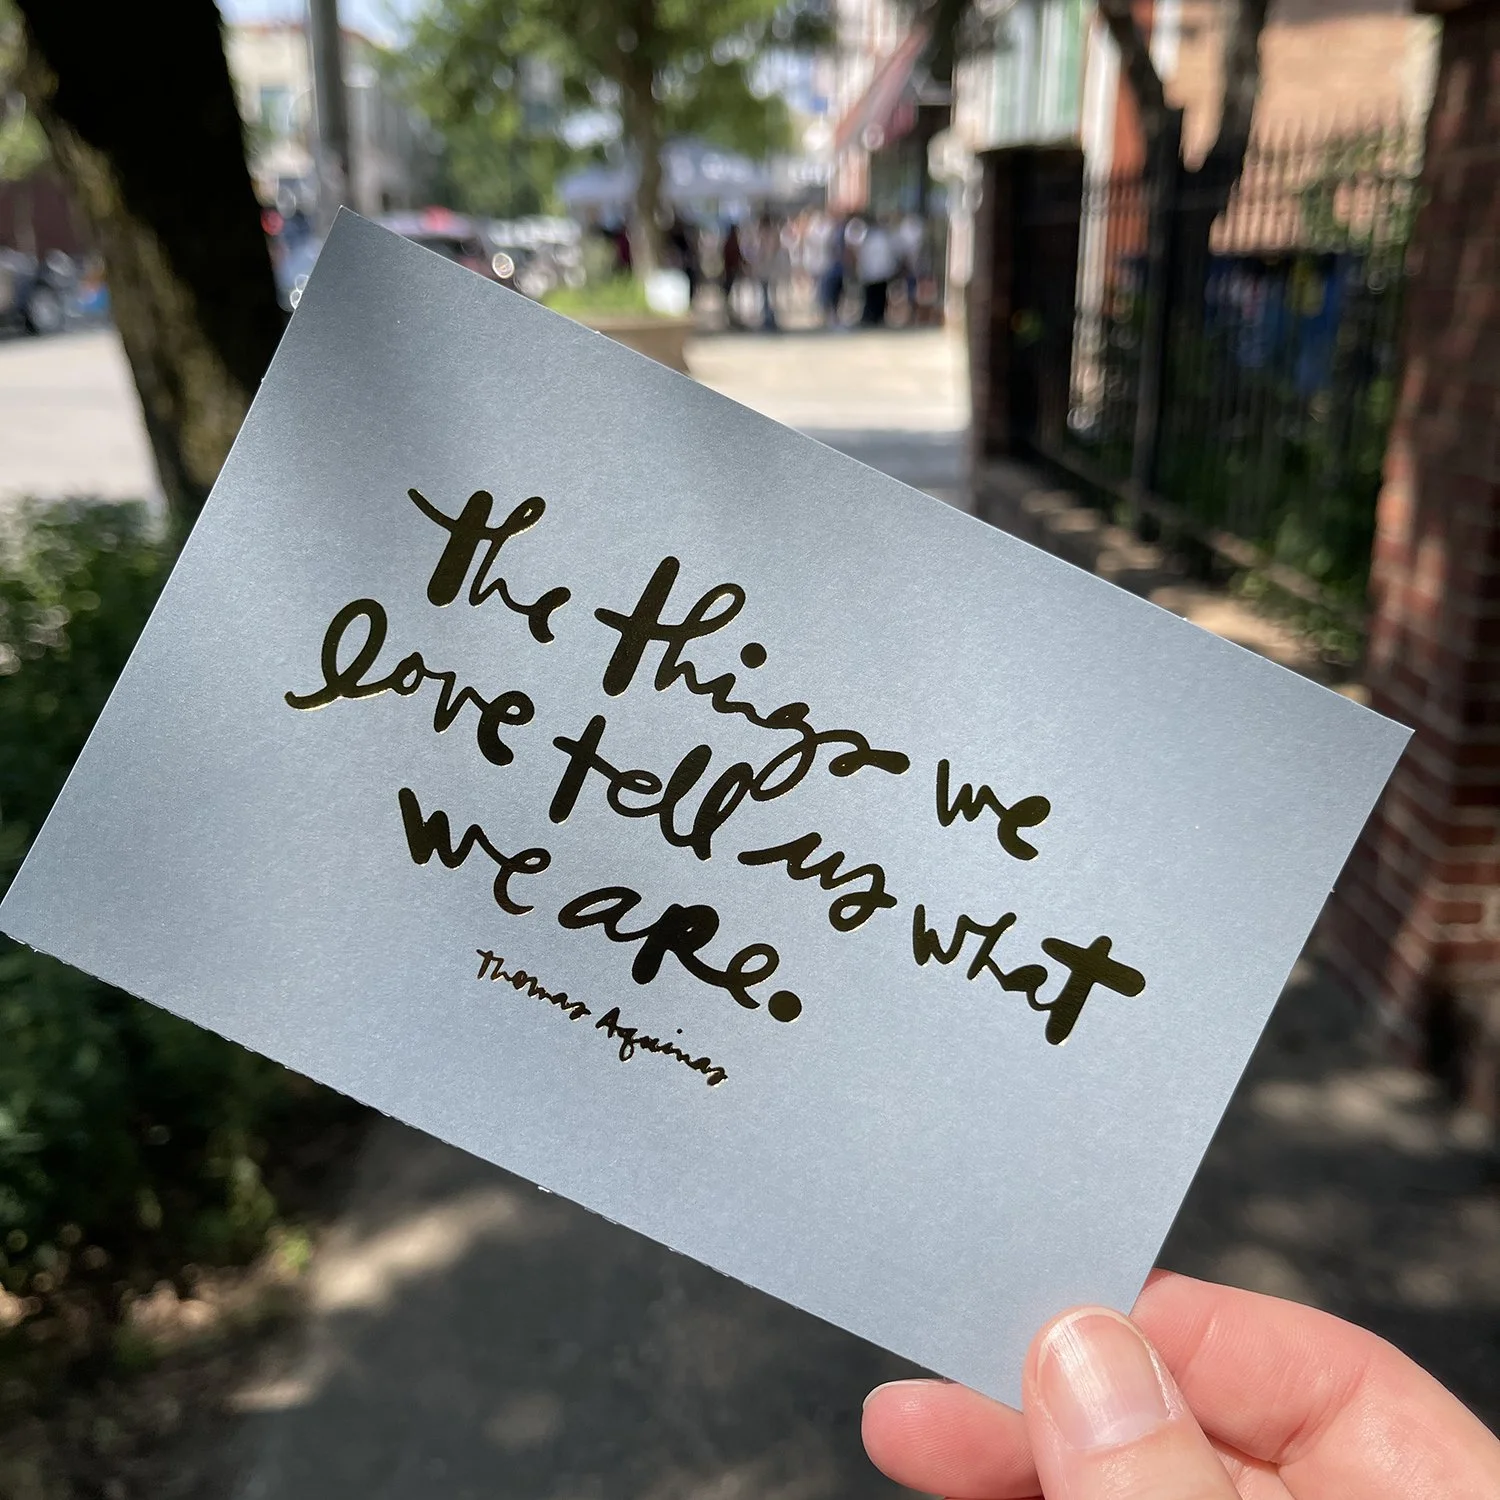 the things we
love tell us what
we are.
Thomas Aquinas